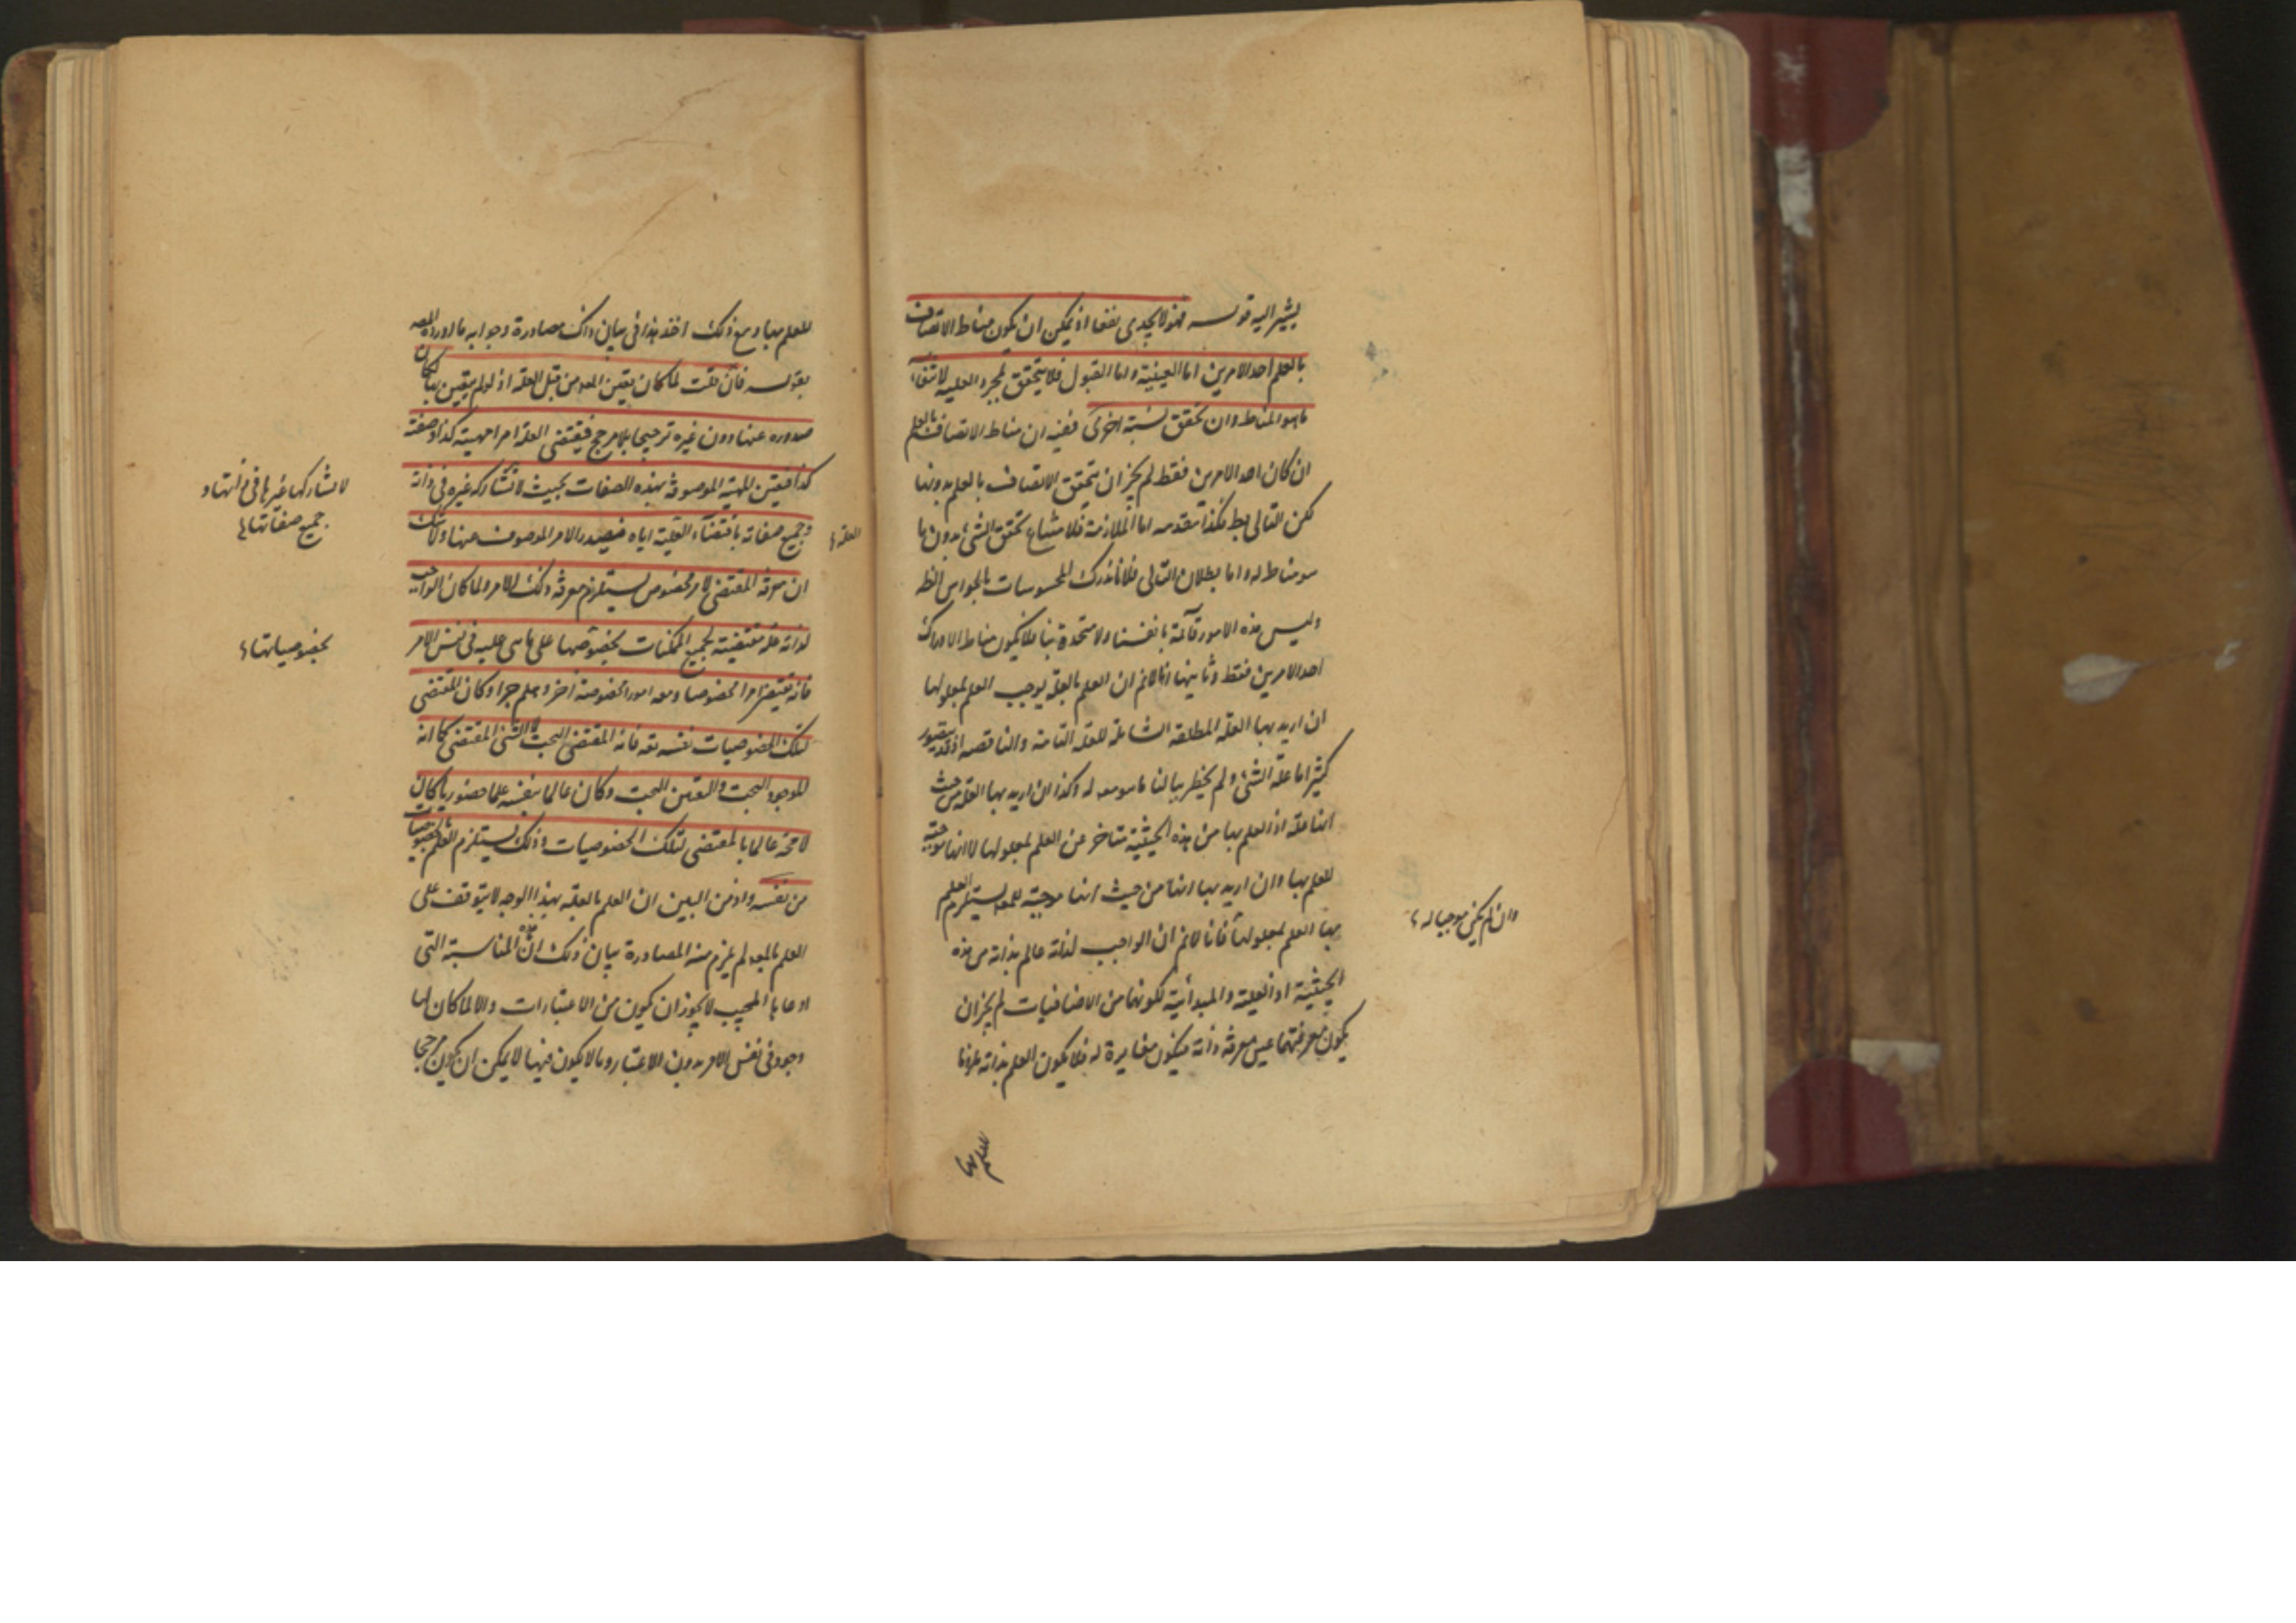 يشير اليه قوله فهو لا يجدى نفعا اذ يمكن ان يكون مناط الاتصاف
بالعلم احد الامرين اما العينية واما القبول فلا يتحقق بمجرد العلية لانتفاء
ما هو المناط وان تحقق نسبة اخرى ففيه ان مناط الاتصاف بالعلم
ان كان احد الامرين فقط لم يجز ان يتحقق الاتصاف بالعلم بدونها
لكن التالى بط فكذا مقدمه اما الملازمة فلامتناع تحقق الشئ بدون ما
هو مناط له واما بطلان التالى فلانا ندرك المحسوسات بالحواس الظ
وليس هذه الامور قائمة بانفسنا ولا متحدة بنا فلا يكون مناط الادراك
احد الامرين فقط وثانيهما انا لانم ان العلم بالعلة يوجب العلم بمعلولها
ان اريد بها العلة المطلقة الشاملة للعلة التامة والناقصه اذ قد يتصور
كثيرا ما علة الشئ ولم يخطر ببالنا ما هو معه له وكذا ان اريد بها العلة من حيث
انها علة اذ العلم بها من هذه الحيثية متاخر عن العلم بمعلولها لا انها موجبة
للعلم بها وان اريد بها انها من حيث انها موجبة للمعلول يستلزم العلم
بها العلم بمعلولها فانا لانم ان الواجب لذاته عالم بذاته من هذه
الحيثية اذ العلية والمبدأية لكونهما من الاضافيات لم يجز ان
يكون معرفتهما عين معرفة ذاته فيكون مغايرة له فلا يكون العلم بذاته علة
وان لم يكن موجبا له
للعلم بها
للعلم بها ومع ذلك اخذ هذا فى بيان ذاك مصادرة وجوابه ما اورده المص
بقوله فان قلت لما كان تعين المعه من قبل العلة اذ لو لم يتعين بها كان
صدوره عنها دون غيره ترجيحا بلا مرجح فيقتضى العلة امرا مهيته كذا وصفته
كذا فيتعين المهية الموصوفة بهذه الصفات بحيث لا تشاركه غيره فى ذاته
وجميع صفاته باقتضاء العلية اياه فيصدر الامر الموصوف عنها ولا شك
ان معرفة المقتضى لامر مخصوص يستلزم معرفة ذلك الامر ولما كان الواجب
لذاته علة مقتضية لجميع الممكنات بخصوصها على ما هى عليه فى نفس الامر
فانه يقتضى امرا مخصوصا ومعه امورا مخصوصة اخر وهلم جرا وكان المقتضى
لتلك الخصوصيات نفسه تعه فانه المقتضى البحت لا الشئ المقتضى كما انه
الموجود البحت والتعين البحت وكان عالما بنفسه علما حضوريا كان
لا محة عالما بالمقتضى لتلك الخصوصيات وذلك يستلزم العلم بالخصوصيات
من نفسه واذ من البين ان العلم بالعلة بهذا الوجه لا يتوقف على
العلم بالمعه لم يلزم منه المصادرة بيان ذلك ان هذه المناسبة التى
ادعاها المجيب لا يجوز ان يكون من الاعتبارات والا لما كان لها
وجود فى نفس الامر بدون الاعتبار وما لا يكون فيها لا يمكن ان يكون مرجحا
لا تشاركها غيرها فى ذاتها و
جميع صفاتها
العلة
بخصوصياتها